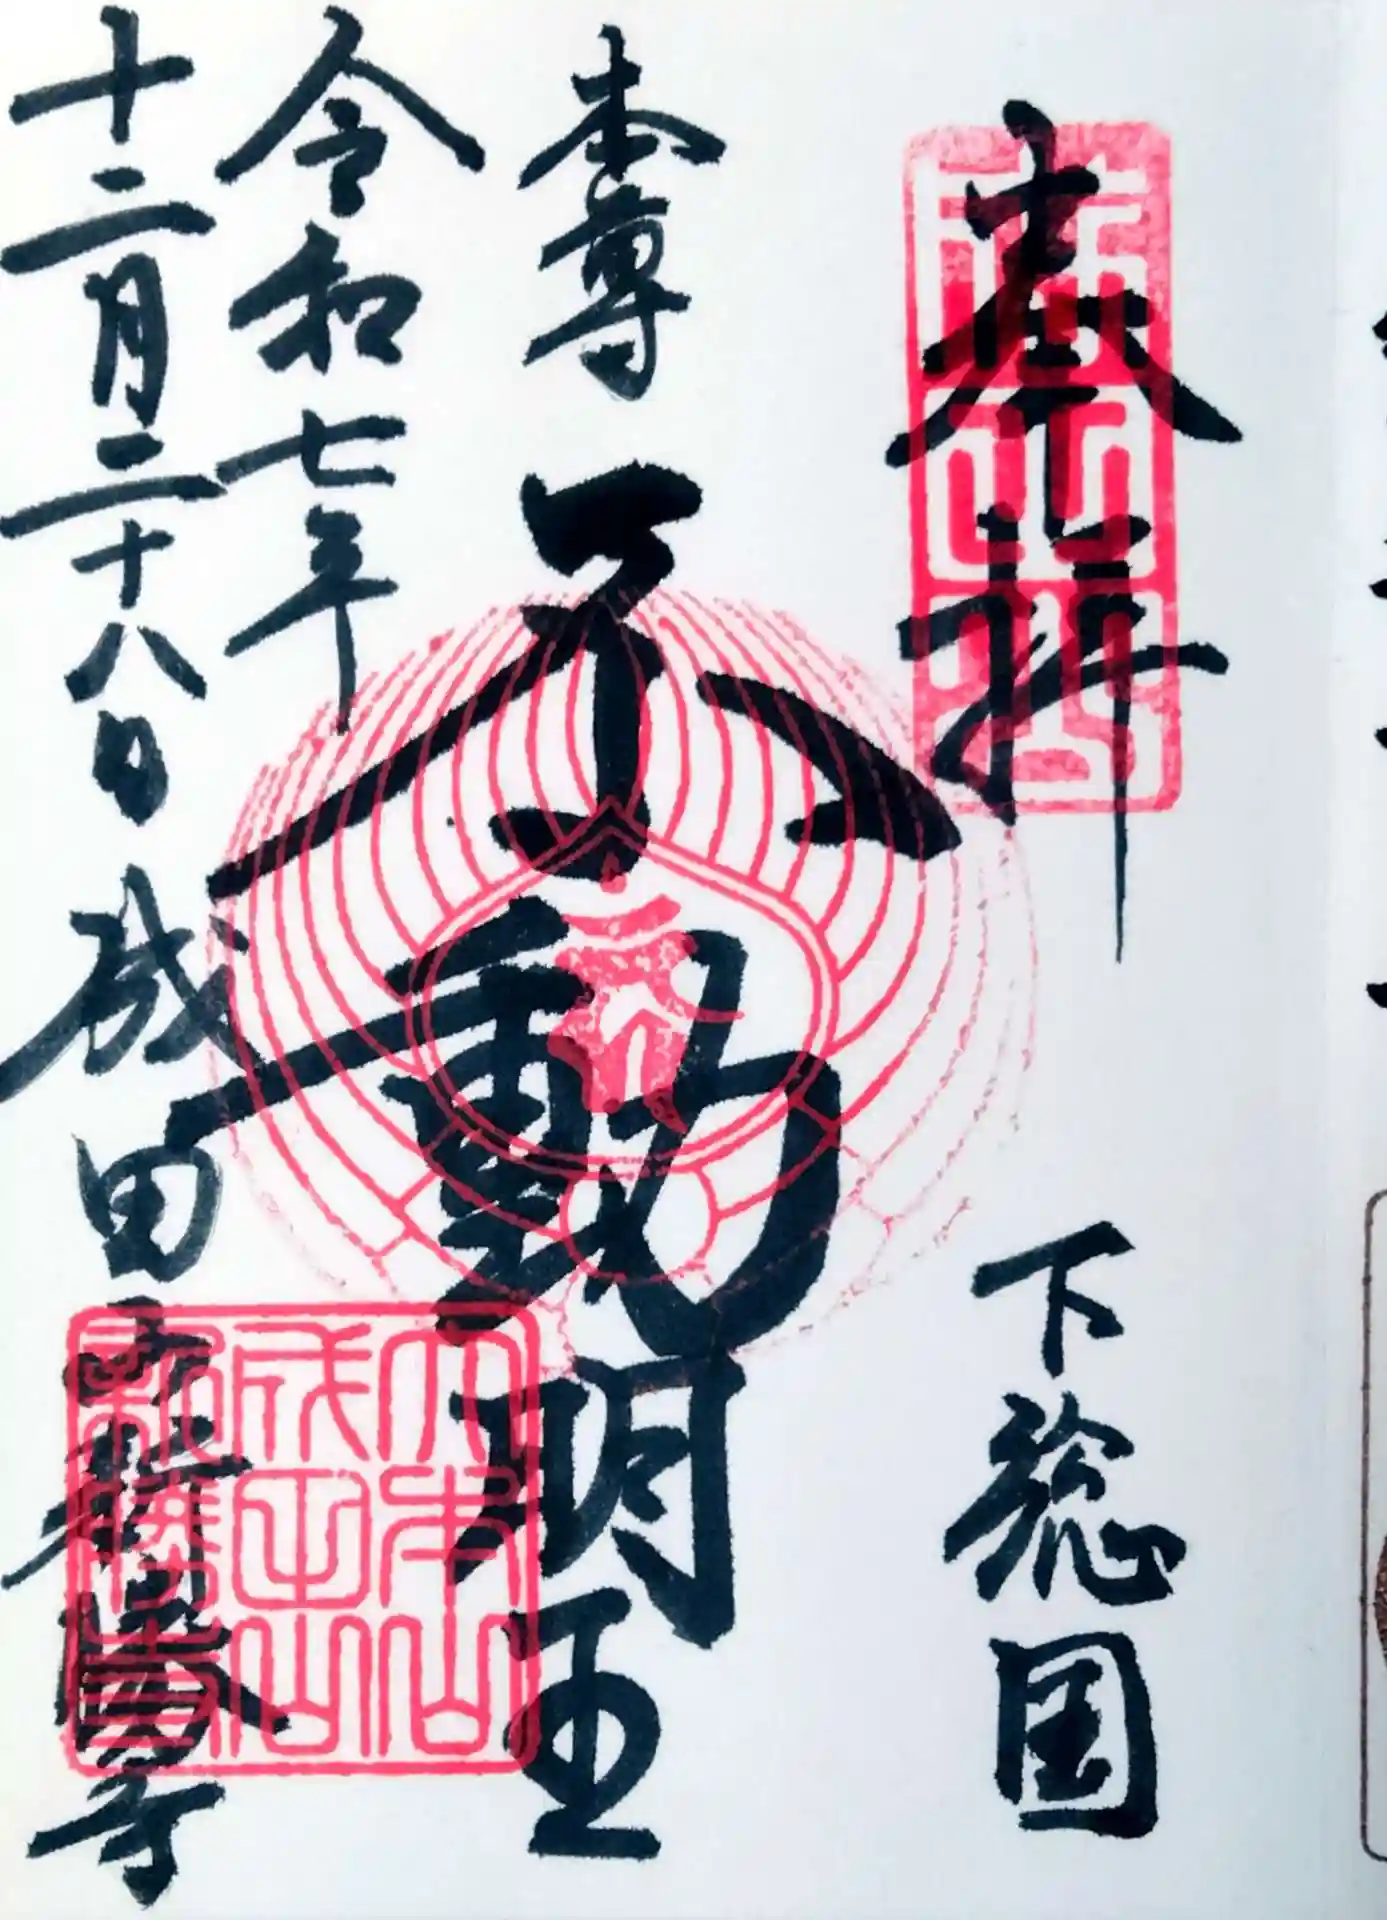 奉拝
下総国
本尊 不動明王
令和七年
十二月二十八日 成田山新勝寺
大本山
成田山
新勝寺